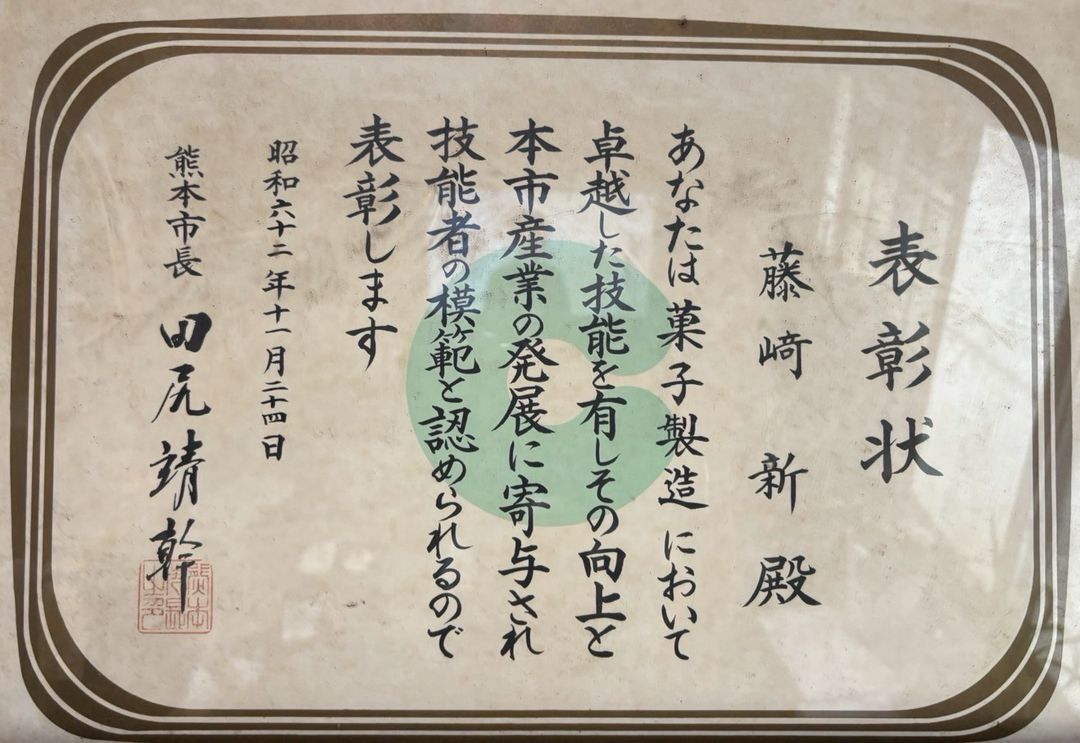 表彰状
藤﨑新殿
あなたは菓子製造において
卓越した技能を有しその向上と
本市産業の発展に寄与され
技能者の模範と認められるので
表彰します
昭和六十二年十一月二十四日
熊本市長 田尻靖幹